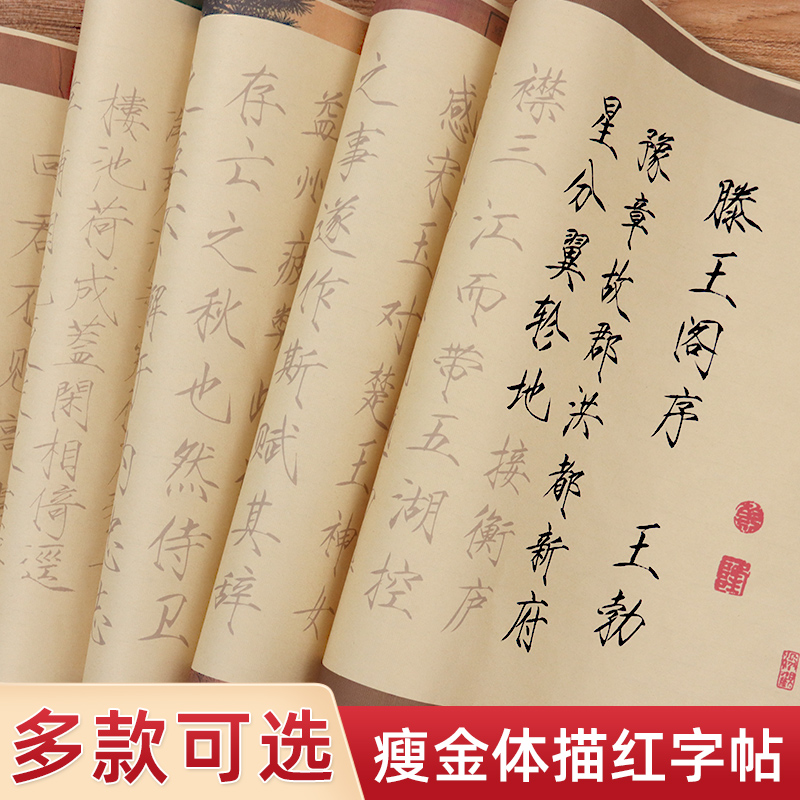 滕王阁序
王勃
豫章故郡洪都新府
星分翼轸地接衡庐
襟三江而带五湖控
感宋玉对楚王神女
之事遂作斯赋其辞
益州疲弊此
存亡之秋也然侍卫
樓池荷成蓋閑相倚逕
回君不见高
多款可选
瘦金体描红字帖